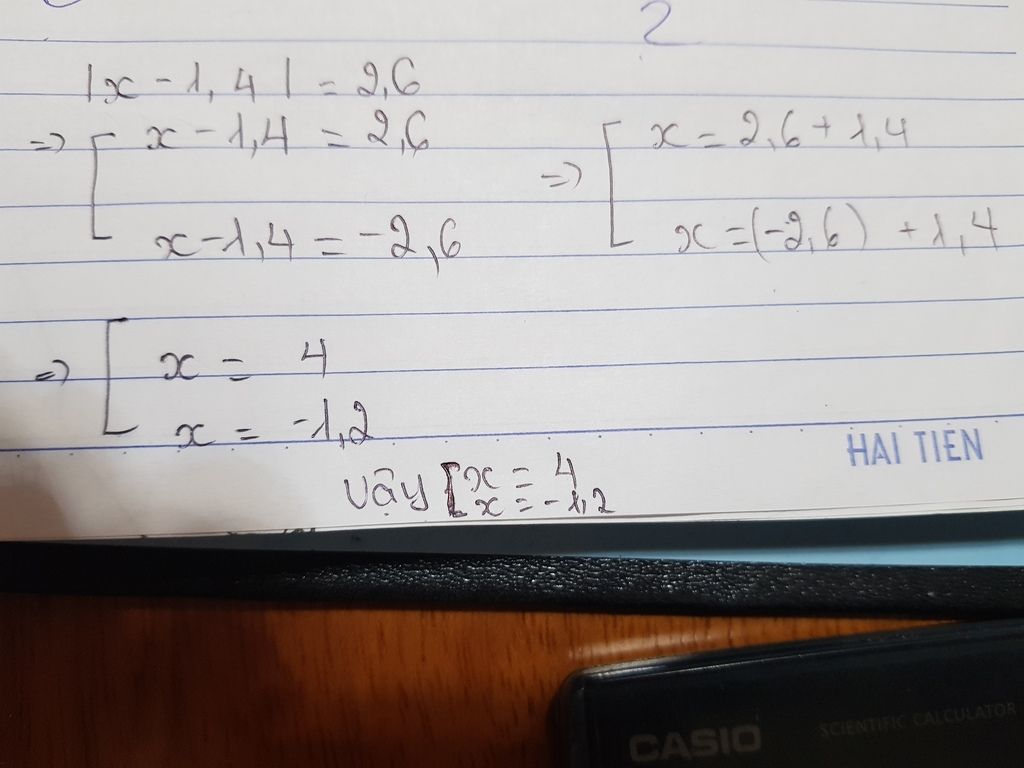 2
|x - 1,4| = 2,6
=> [ x - 1,4 = 2,6 => [ x = 2,6 + 1,4
x - 1,4 = -2,6 x = (-2,6) + 1,4
=> [ x = 4
x = -1,2
HAI TIEN
Vậy [ x = 4
x = -1,2
CASIO SCIENTIFIC CALCULATOR